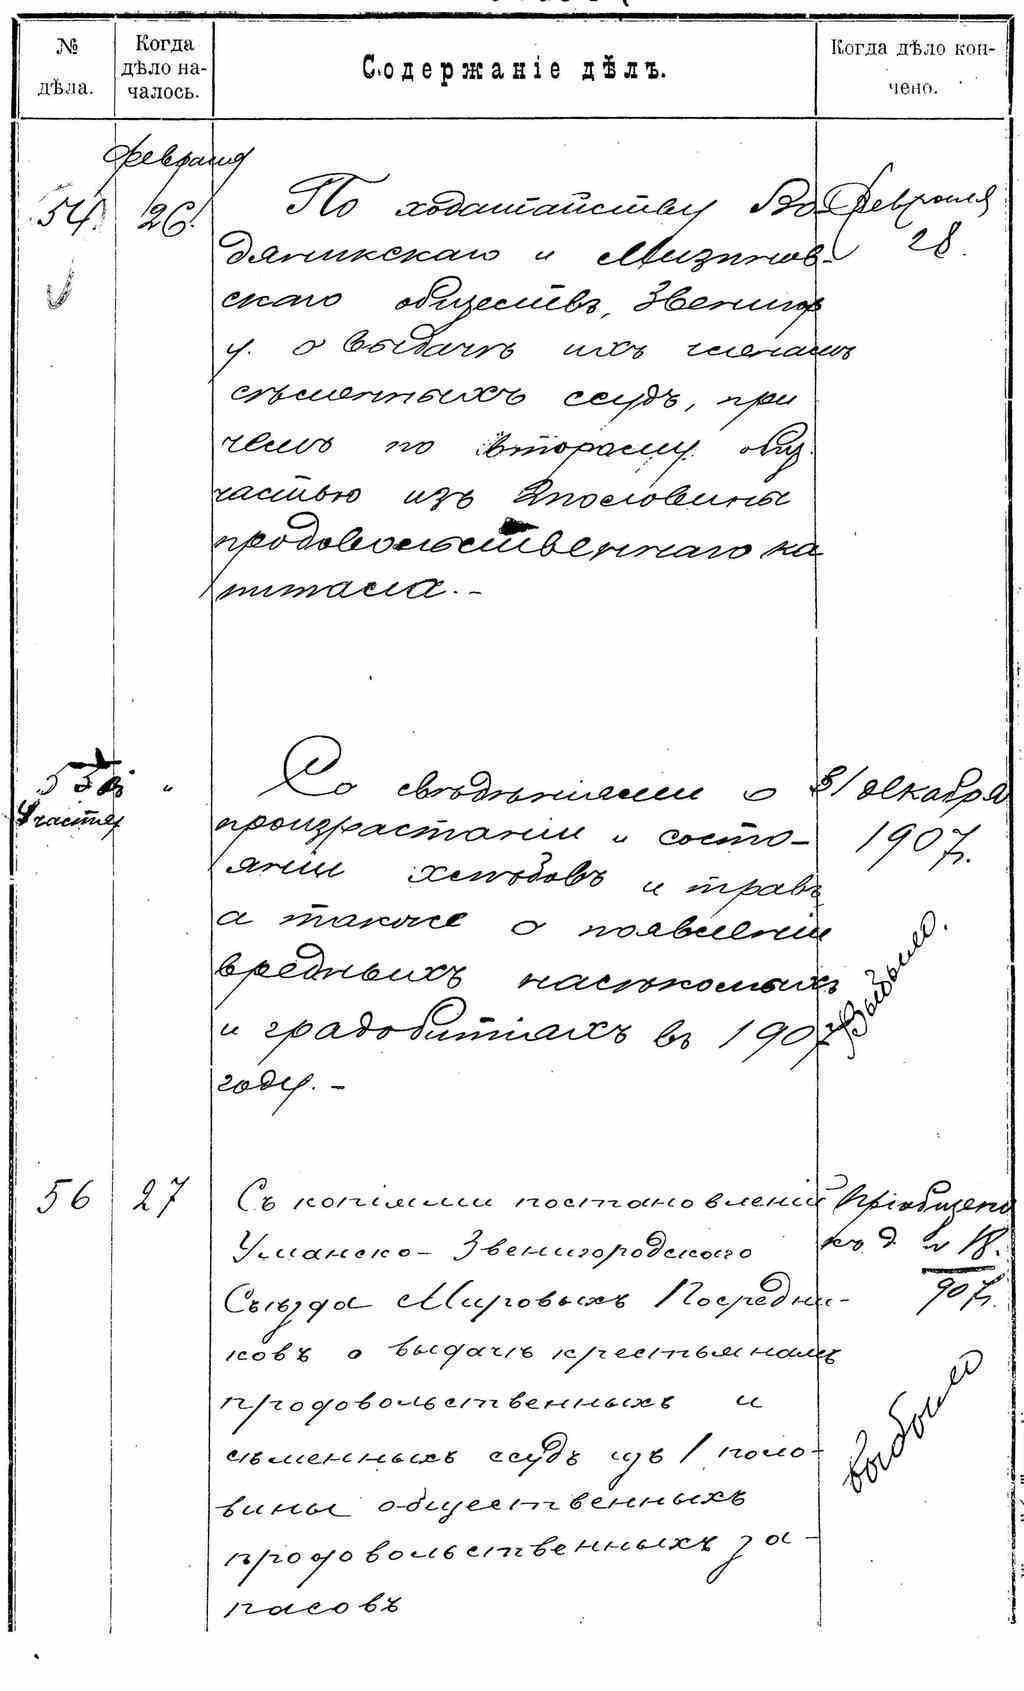 № дѣла.
Когда дѣло на-
чалось.
Содержаніе дѣлъ.
Когда дѣло кон-
чено.
февраля
54. 26. По ходатайству Во- Февраля
дяникскаго и Мизинов- 28.
скаго обществъ, Звениг.
у. о выдачѣ ихъ членамъ
сѣменныхъ ссудъ, при
чемъ по второму общ.
частью изъ 2 половины
продовольственнаго ка
питала. -
55 " Со свѣдѣніями о 31 декабря
4 частях произрастаніи и состо- 1907 г.
яніи хлѣбовъ и травъ,
а также о появленіи
вредныхъ насѣкомыхъ
и градобитіяхъ въ 1907
году. -
Выбыло.
56 27 Съ копіями постановленій Пріобщено
Уманско-Звенигородскаго къ д. № 18.
Съѣзда Мировыхъ Посредни- 907 г.
ковъ о выдачѣ крестьянамъ
продовольственныхъ и
сѣменныхъ ссудъ изъ 1 поло-
вины общественныхъ
продовольственныхъ за-
пасовъ
выбыло